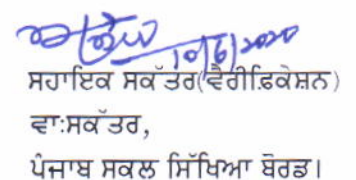 10/6/2020
ਸਹਾਇਕ ਸਕੱਤਰ(ਵੈਰੀਫਿਕੇਸ਼ਨ)
ਵਾ:ਸਕੱਤਰ,
ਪੰਜਾਬ ਸਕੂਲ ਸਿੱਖਿਆ ਬੋਰਡ।